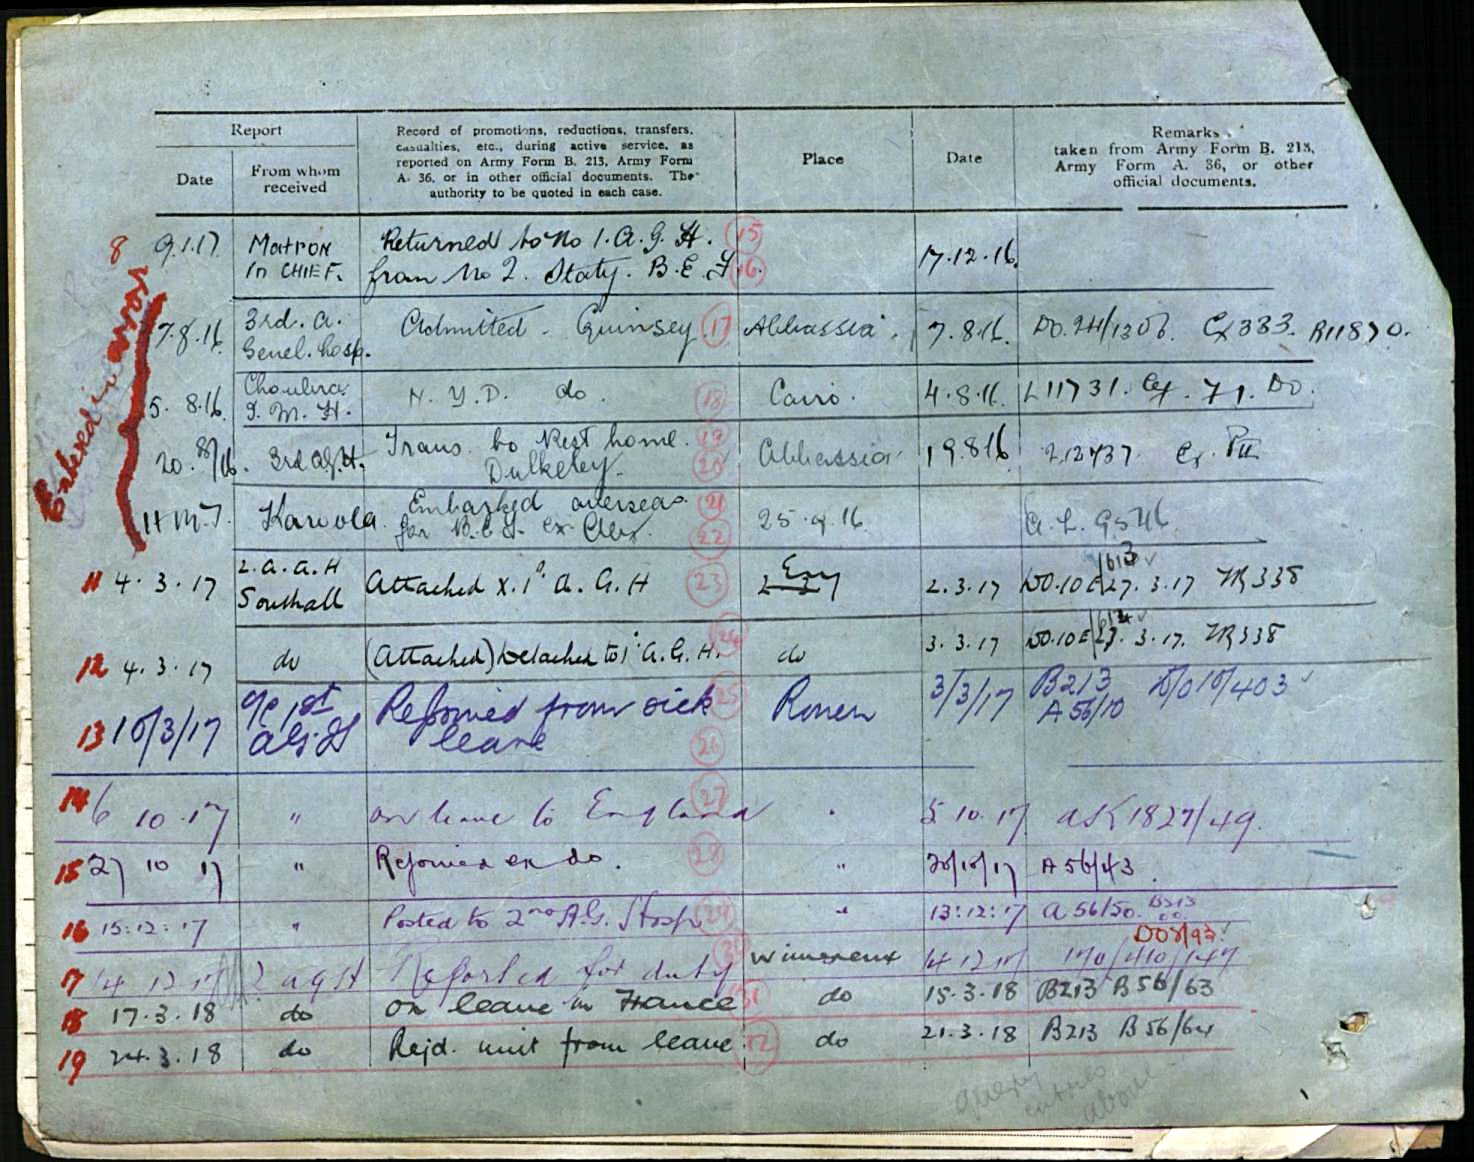 Report
Date
From whom
received
Record of promotions, reductions, transfers,
casualties, etc., during active service, as
reported on Army Form B. 213, Army Form
A. 36, or in other official documents. The
authority to be quoted in each case.
Place
Date
Remarks
taken from Army Form B. 213,
Army Form A. 36, or other
official documents.
Entered in error
8 9.1.17 Matron Returned to No 1. A. G. H. 15
in CHIEF. from No 2. Staty. B. E. F. 16 17.12.16.
7.8.16 3rd. A. Admitted - Quinsey 17 Abbassia. 7.8.16. DO.24/1306. Cx 383. R11870.
Genel. hosp.
5. 8.16. Choubra N. Y. D. do. 18 Cairo. 4.8.16. L11731. Cx. 71. DO.
I. M. H.
20. 8/16. 3rd A.G.H. Trans. to Rest home. 19 Abbassia 19.8.16 212437 Cx. PII
Dulkeley 20
H.M.T. Karoola Embarked overseas 21 25.9.16. A. L. 9546
for B.E.F. ex Alex. 22
11 4. 3. 17 2. A. A. H Attached x. 1° A. G. H 23 2.3.17 DO.10E/27. 3.17 ZR338
Southall /613
12 4. 3. 17 do (Attached) Detached to 1° A. G. H. 24 do 3.3.17 DO.10E/27. 3.17. ZR338
/614
13 10/3/17 O/C 1st Rejoined from sick 25 Rouen 3/3/17 B213 D/010/403
A.G.H leave 26 A 56/10
14 6 10 17 " on leave to England 27 " 5 10 17 ASK 1827/49.
15 27 10 17 " Rejoined ex do. 28 " 20/10/17 A 56/43.
16 15:12:17 " Posted to 2nd A.G. Hosp 29 " 13:12:17 A 56/50. B213
DO8/93
17 14 12 17 2 AGH Reported for duty 30 Wimereux 14 12 17 170/410/147
18 17.3.18 do on leave in France 31 do 15.3.18 B213 B56/63
19 24.3.18 do Rejd. unit from leave. 32 do 21.3.18 B213 B56/64
query
entries
above